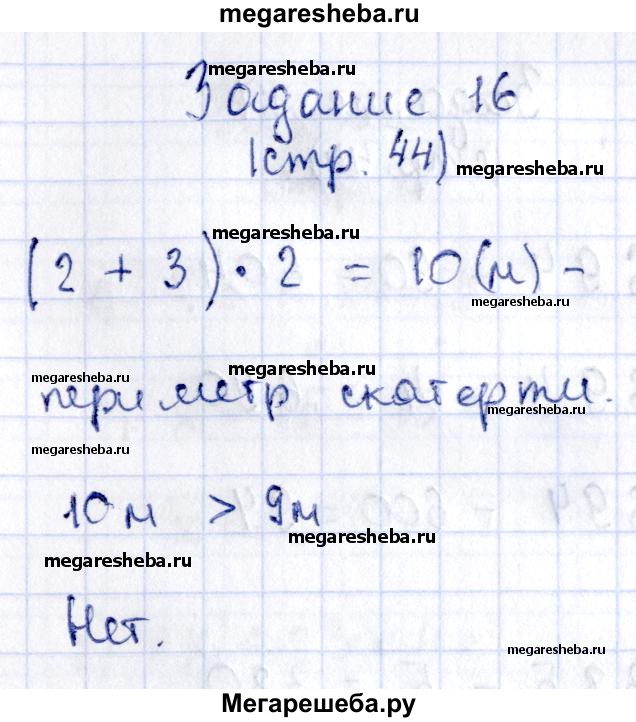 megaresheba.ru
megaresheba.ru
Задание 16
(стр. 44)
megaresheba.ru
megaresheba.ru
(2 + 3) · 2 = 10 (м) -
megaresheba.ru
megaresheba.ru
megaresheba.ru
периметр скатерти.
megaresheba.ru
megaresheba.ru
10 м > 9 м
megaresheba.ru
megaresheba.ru
Нет.
megaresheba.ru
Мегарешеба.ру